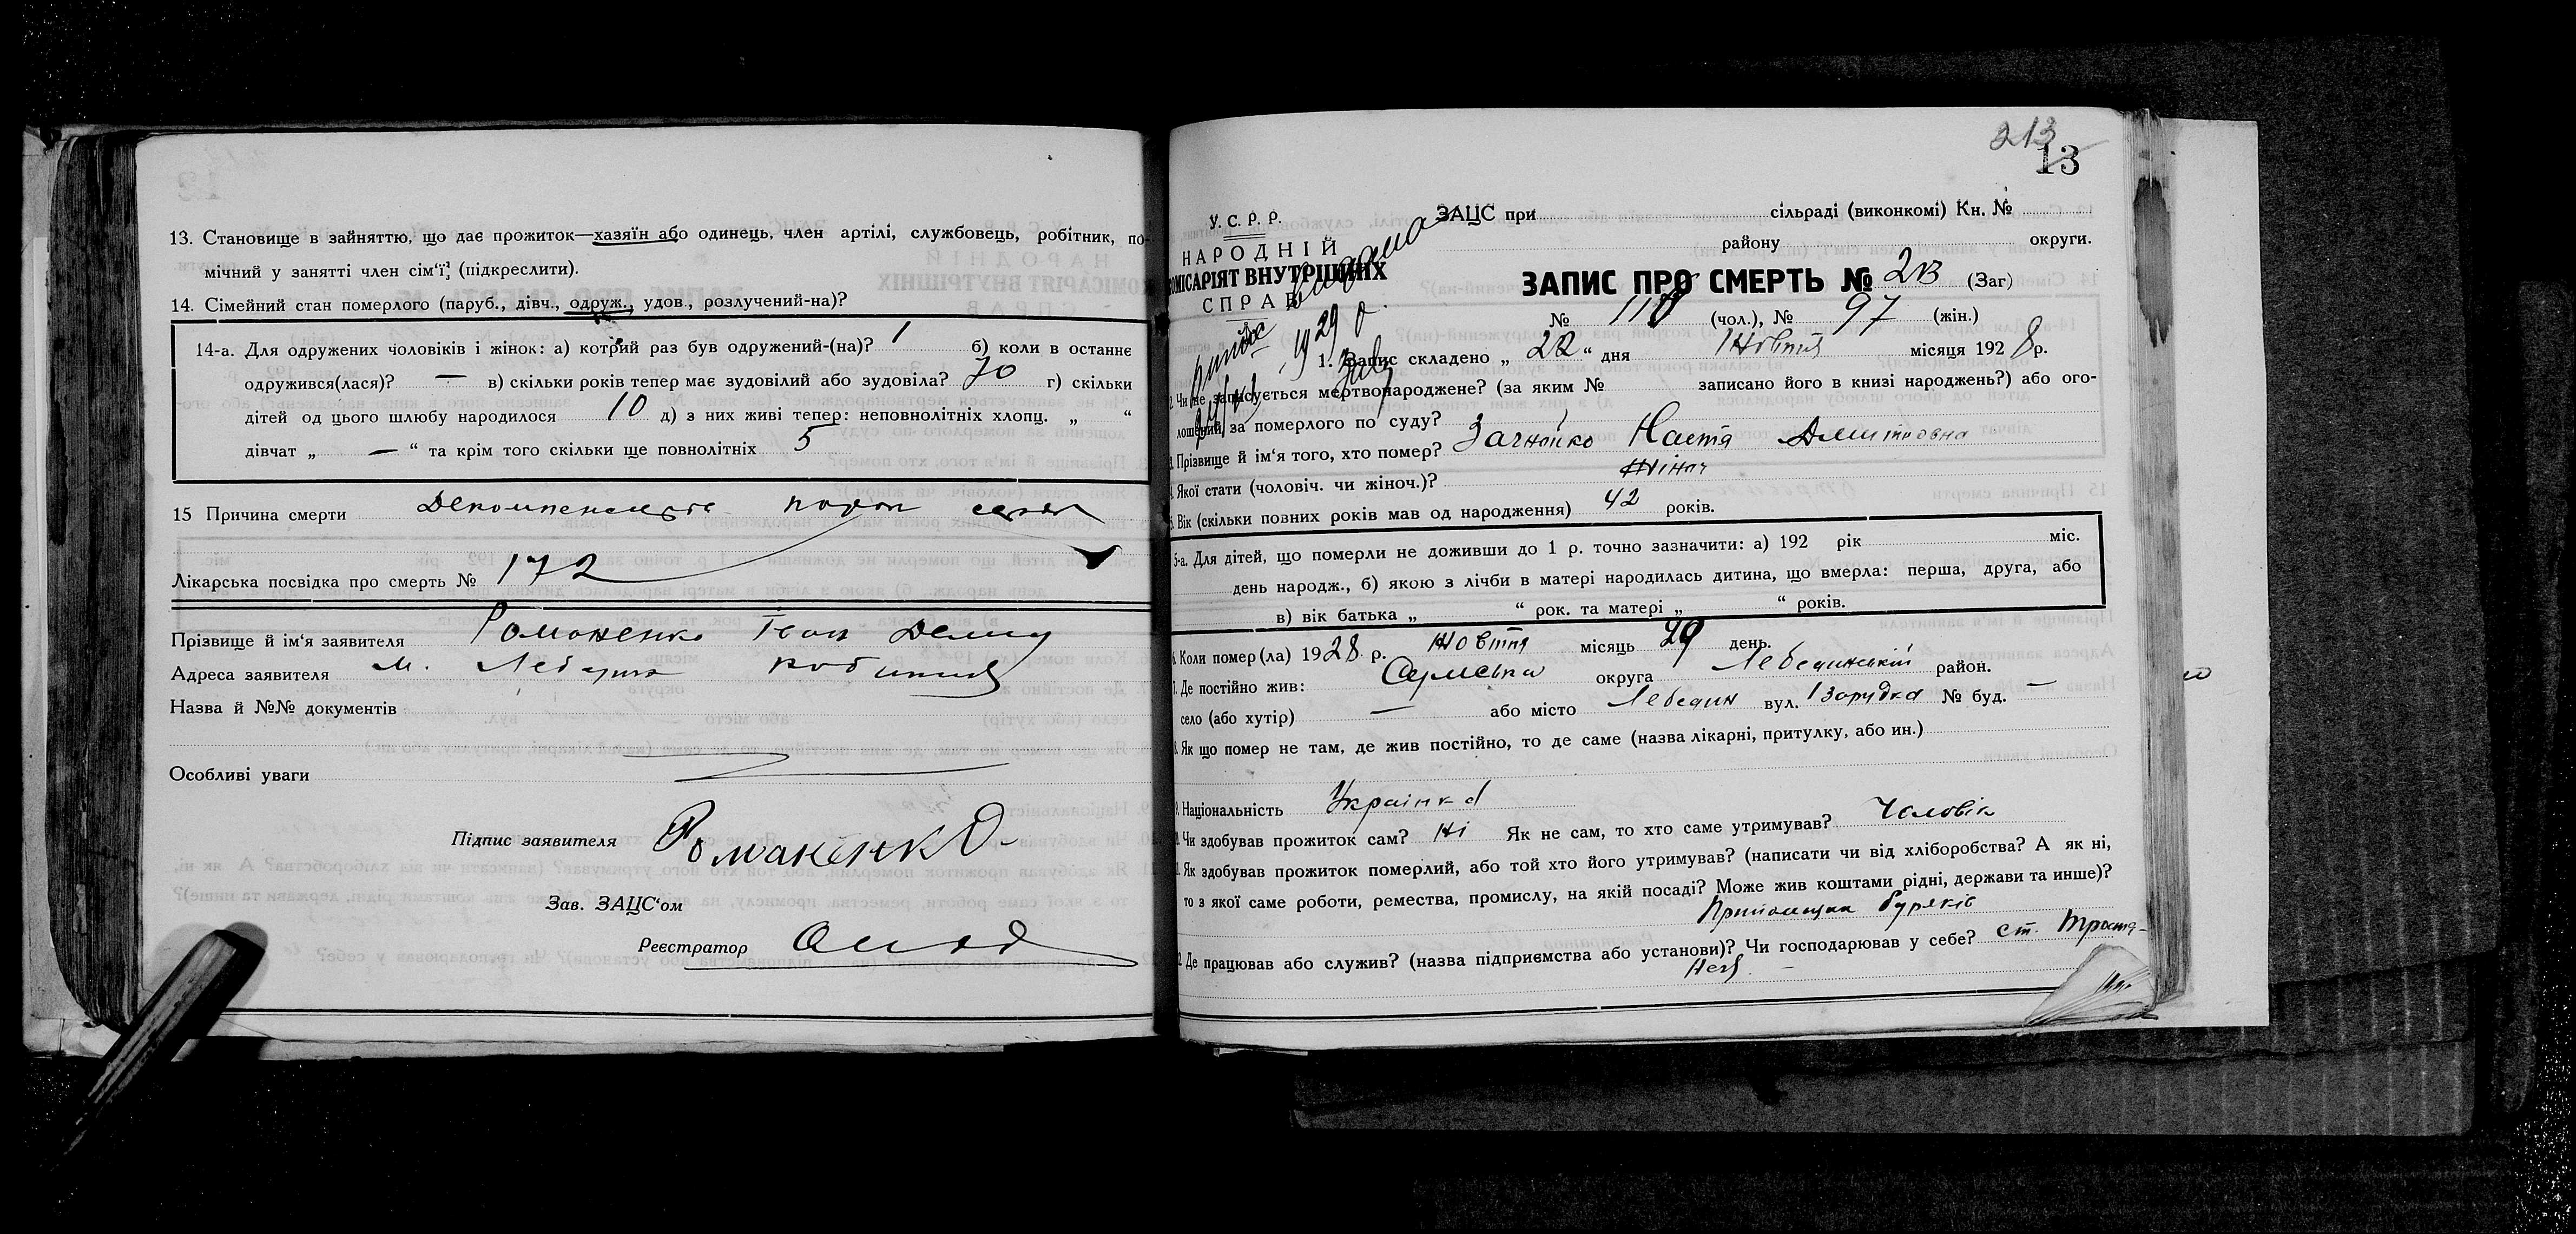 13. Становище в зайняттю, що дає прожиток—хазяїн або одинець, член артілі, службовець, робітник, по-
мічний у занятті член сім'ї, (підкреслити).
14. Сімейний стан померлого (паруб., дівч., одруж., удов., розлучений-на)?
14-а. Для одружених чоловіків і жінок: а) котрий раз був одружений-(на)? 1 б) коли в останнє
одружився(лася)? — в) скільки років тепер має зудовілий або зудовіла? 70 г) скільки
дітей од цього шлюбу народилося 10 д) з них живі тепер: неповнолітніх хлопц. „ “
дівчат „ — “ та крім того скільки ще повнолітніх 5
15 Причина смерти
Лікарська посвідка про смерть № 172
Прізвище й ім'я заявителя Романенко Іван
Адреса заявителя м. Лебедин
Назва й №№ документів
Особливі уваги
Підпис заявителя Романенко
Зав. ЗАЦС'ом
Реєстратор
213
13
У. С. Р. Р.
НАРОДНІЙ
КОМІСАРІЯТ ВНУТРІШНІХ
СПРАВ
видана
1929 р.
ЗАЦС при сільраді (виконкомі) Кн. №
району округи.
ЗАПИС ПРО СМЕРТЬ № (Заг)
№ 110 (чол.), № 97 (жін.)
1. Запис складено „ 22 “ дня Жовтня місяця 1928 р.
2. Чи не записується мертвонароджене? (за яким № записано його в книзі народжень?) або ого-
лошений за померлого по суду?
3. Прізвище й ім'я того, хто помер? Настя
4. Якої стати (чоловіч. чи жіноч.)? жіноч
5. Вік (скільки повних років мав од народження) 42 років.
5-а. Для дітей, що померли не доживши до 1 р. точно зазначити: а) 192 рік міс.
день народж., б) якою з лічби в матері народилась дитина, що вмерла: перша, друга, або
в) вік батька „ “ рок. та матері „ “ років.
6. Коли помер(ла) 1928 р. Жовтня місяць день.
7. Де постійно жив: Сумська округа Лебединський район.
село (або хутір) — або місто Лебедин вул. № буд. —
8. Як що помер не там, де жив постійно, то де саме (назва лікарні, притулку, або ин.)
9. Національність Українка
10. Чи здобував прожиток сам? Ні Як не сам, то хто саме утримував? Чоловік
11. Як здобував прожиток померлий, або той хто його утримував? (написати чи від хліборобства? А як ні,
то з якої саме роботи, ремества, промислу, на якій посаді? Може жив коштами рідні, держави та инше)?
буряків
12. Де працював або служив? (назва підприємства або установи)? Чи господарював у себе? ст. Тростя-
нец